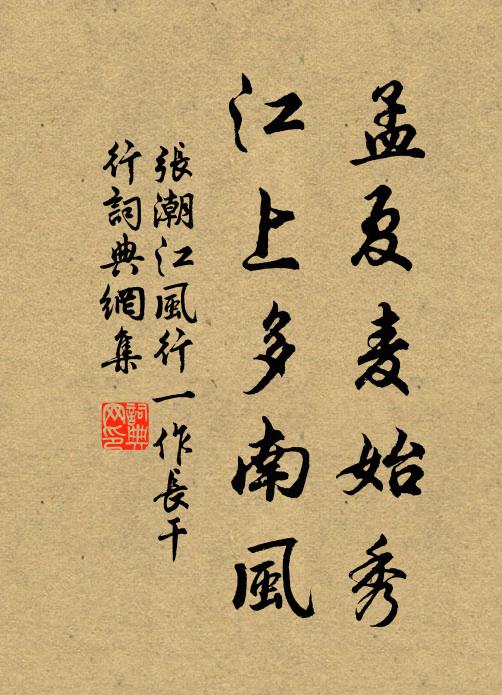 孟夏麦始秀
江上多南風
張潮江風行一作長干
行詞典網集
詞典网印